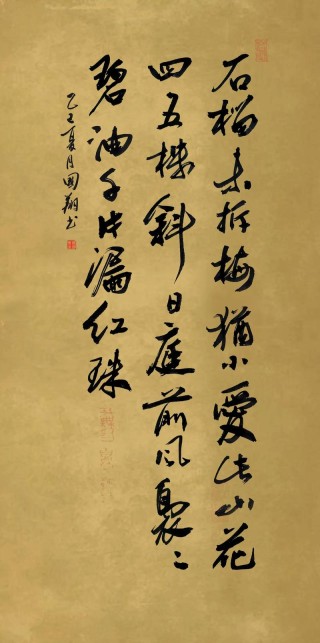 石榴未拆梅猶小愛此山花
四五株斜日庭前风裊〻
碧油千片漏红珠
夏月国翔书